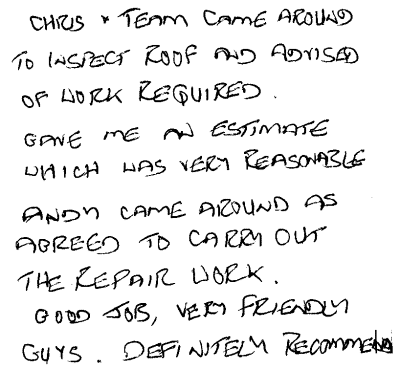 CHRIS & TEAM CAME AROUND
TO INSPECT ROOF AND ADVISED
OF WORK REQUIRED.
GAVE ME AN ESTIMATE
WHICH WAS VERY REASONABLE
ANDY CAME AROUND AS
AGREED TO CARRY OUT
THE REPAIR WORK.
GOOD JOB, VERY FRIENDLY
GUYS. DEFINITELY RECOMMEND